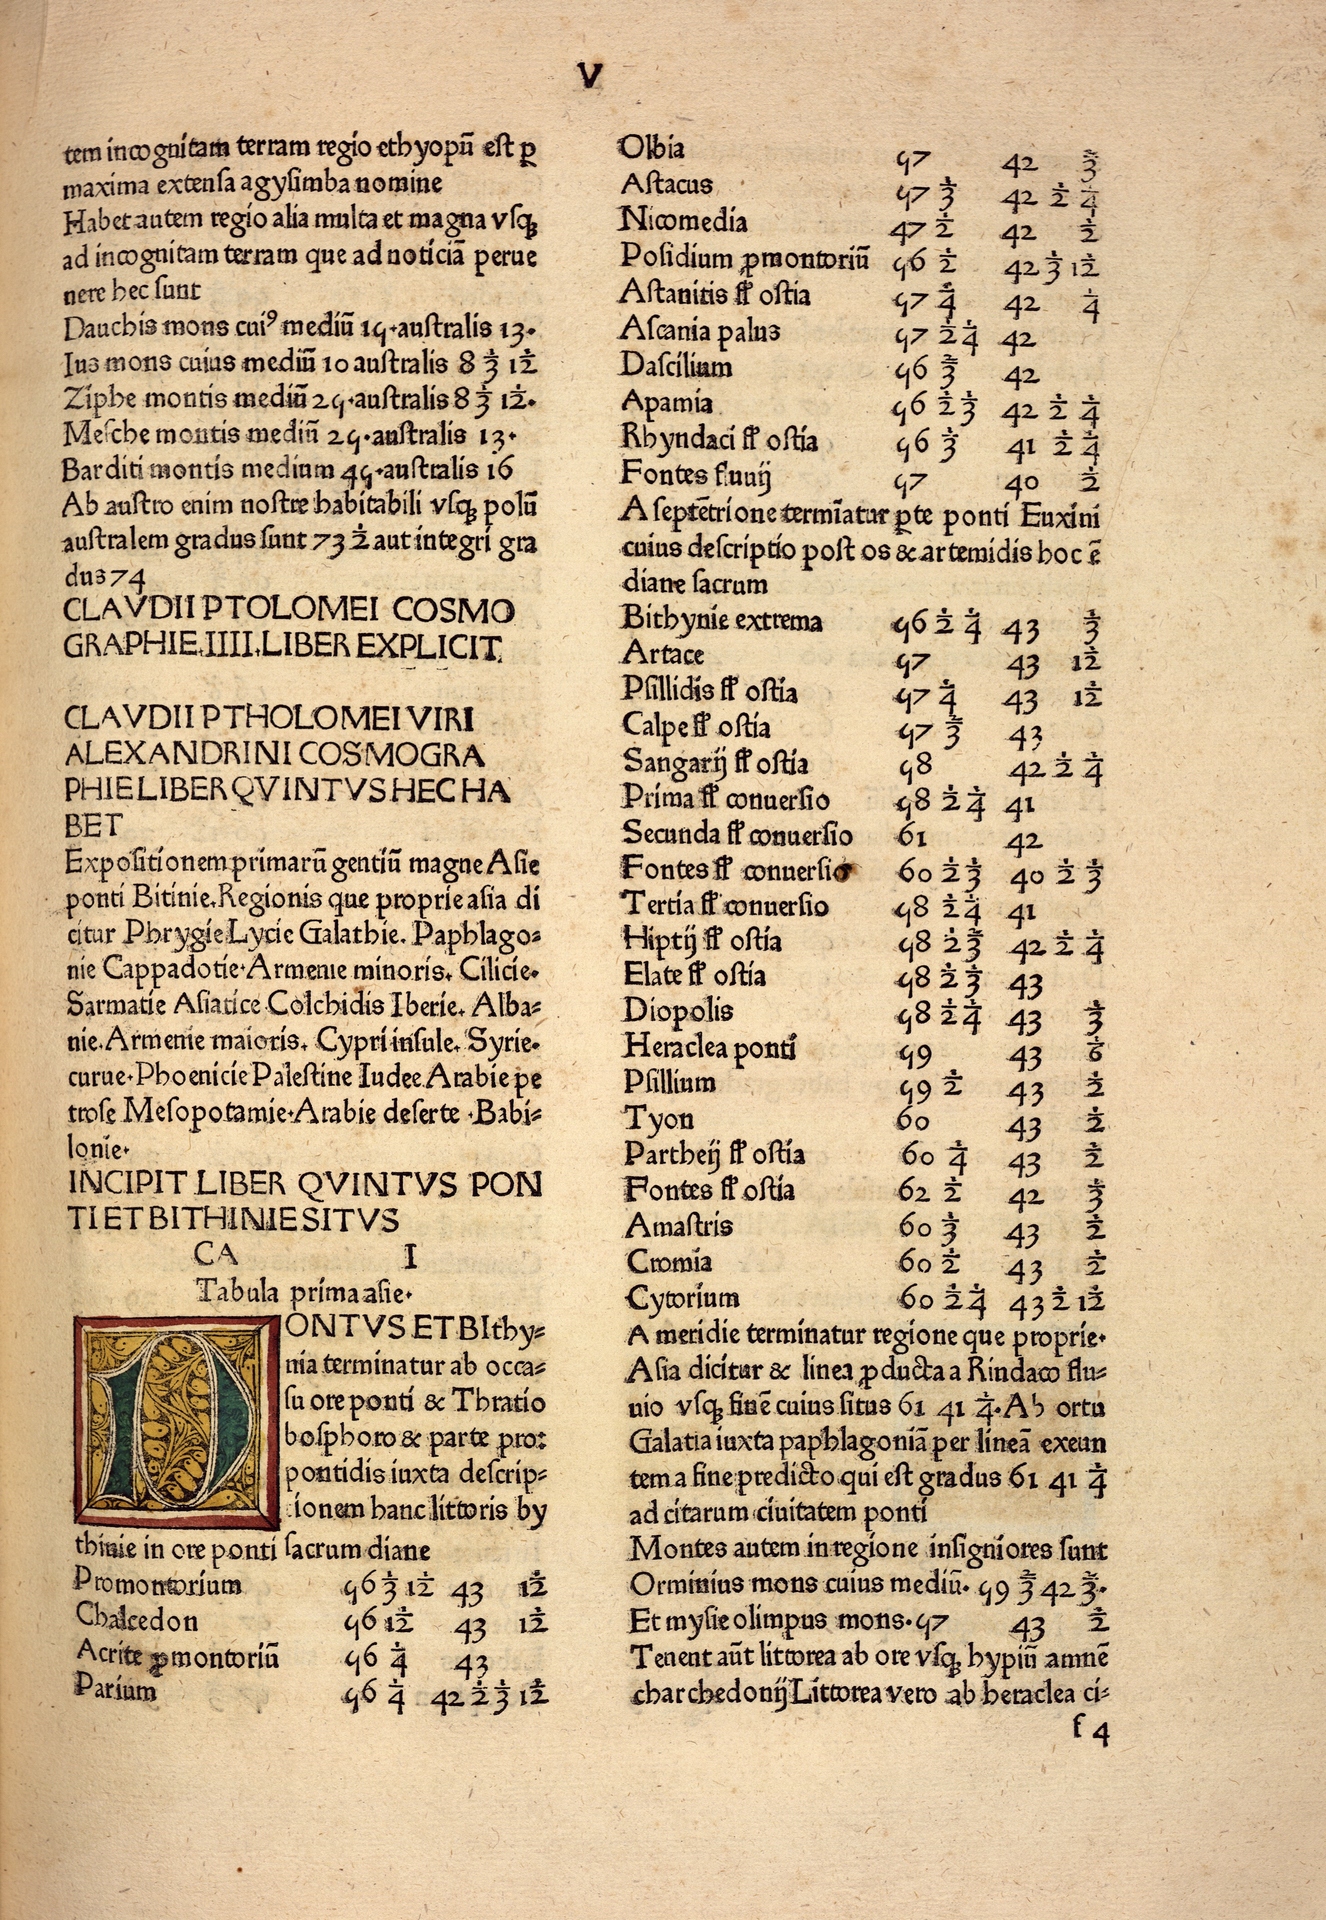 V
tem incognitam terram regio ethyopū est ꝑ
maxima extensa agysimba nomine
Habet autem regio alia multa et magna vsqꝫ
ad incognitam terram que ad noticiā perue
nere hec sunt
Dauchis mons cuiꝰ mediū 15·australis 13·
Ius mons cuius mediū 10 australis 8 ⅓ 1/12
Ziphe montis mediū 25·australis 8 ⅓ 1/12·
Mesche montis mediū 25·australis 13·
Barditi montis medium 45·australis 16
Ab austro enim nostre habitabili vsqꝫ polū
australem gradus sunt 73 ½ aut integri gra
dus 74
CLAVDII PTOLOMEI COSMO
GRAPHIE.IIII.LIBER EXPLICIT.
CLAVDII PTHOLOMEI VIRI
ALEXANDRINI COSMOGRA
PHIE LIBER QVINTVS HEC HA
BET
Expositionem primarū gentiū magne Asie
ponti Bitinie.Regionis que proprie asia di
citur Phrygie Lycie Galathie. Paphlago=
nie Cappadotie·Armenie minoris. Cilicie·
Sarmatie Asiatice Colchidis Iberie. Alba=
nie.Armenie maioris. Cypri insule. Syrie·
curue·Phoenicie Palestine Iudee Arabie pe
trose Mesopotamie·Arabie deserte ·Babi=
lonie·
INCIPIT LIBER QVINTVS PON
TI ET BITHINIE SITVS
CA I
Tabula prima asie·
PONTVS ET BIthy=
nia terminatur ab occa=
su ore ponti & Thratio
bosphoro & parte pro:
pontidis iuxta descrip=
tionem hanc littoris by
thinie in ore ponti sacrum diane
Promontorium 56 ⅓ 1/12 43 1/12
Chalcedon 56 1/12 43 1/12
Acrite ꝓmontoriū 56 ¼ 43
Parium 56 ¼ 42 ½ ⅓ 1/12
Olbia 57 42 ⅔
Astacus 57 ⅓ 42 ½ ¼
Nicomedia 47 ½ 42 ½
Posidium ꝓmontoriū 56 ½ 42 ⅓ 1/12
Astanitis fl̄ ostia 57 ¼ 42 ¼
Ascania palus 57 ½ ¼ 42
Dascilium 56 ⅔ 42
Apamia 56 ½ ⅓ 42 ½ ¼
Rhyndaci fl̄ ostia 56 ⅓ 41 ½ ¼
Fontes fluuij 57 40 ½
A septētrione termīatur ꝑte ponti Euxini
cuius descriptio post os & artemidis hoc ē
diane sacrum
Bithynie extrema 56 ½ ¼ 43 ⅓
Artace 57 43 1/12
Psillidis fl̄ ostia 57 ¼ 43 1/12
Calpe fl̄ ostia 57 ⅔ 43
Sangarij fl̄ ostia 58 42 ½ ¼
Prima fl̄ conuersio 58 ½ ¼ 41
Secunda fl̄ conuersio 61 42
Fontes fl̄ conuersio 60 ½ ⅓ 40 ½ ⅓
Tertia fl̄ conuersio 58 ½ ¼ 41
Hiptij fl̄ ostia 58 ½ ⅔ 42 ½ ¼
Elate fl̄ ostia 58 ½ ⅓ 43
Diopolis 58 ½ ¼ 43 ⅓
Heraclea ponti 59 43 ⅙
Psillium 59 ½ 43 ½
Tyon 60 43 ½
Partheij fl̄ ostia 60 ¼ 43 ½
Fontes fl̄ ostia 62 ½ 42 ⅓
Amastris 60 ⅓ 43 ½
Cromia 60 ½ 43 ½
Cytorium 60 ½ ¼ 43 ½ 1/12
A meridie terminatur regione que proprie·
Asia dicitur & linea ꝓducta a Rindaco flu=
uio vsqꝫ finē cuius situs 61 41 ¼·Ab ortu
Galatia iuxta paphlagoniā per lineā exeun
tem a fine predicto qui est gradus 61 41 ¼
ad citarum ciuitatem ponti
Montes autem in regione insigniores sunt
Orminius mons cuius mediū· 59 ⅔ 42 ⅔·
Et mysie olimpus mons·57 43 ½
Tenent aūt littorea ab ore vsqꝫ hypiū amnē
charchedonij Littorea vero ab heraclea ci=
f 4